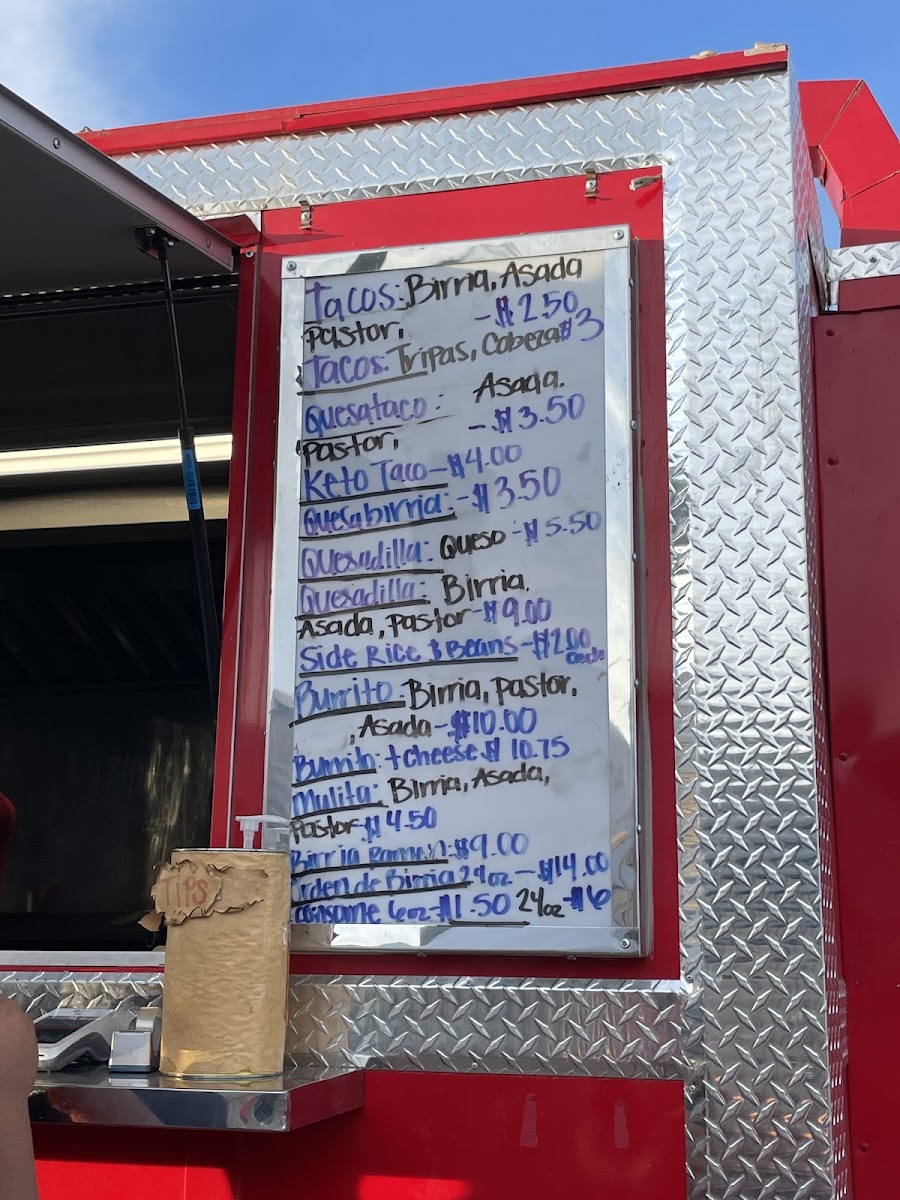 Tacos: Birria, Asada
Pastor, - $2.50
Tacos: Tripas, Cabeza $3
Quesataco: Asada.
Pastor, - $3.50
Keto Taco - $4.00
Quesabirria: - $3.50
Quesadilla: Queso - $5.50
Quesadilla: Birria,
Asada, Pastor - $9.00
Side Rice $ Beans - $2.00
Each
Burrito: Birria, Pastor,
Asada - $10.00
Burrito: + Cheese $10.75
Mulita: Birria, Asada,
Pastor - $4.50
Birria Ramen - $9.00
Orden de Birria 24oz - $14.00
Consome 6oz - $1.50 24oz - $6
TIPS